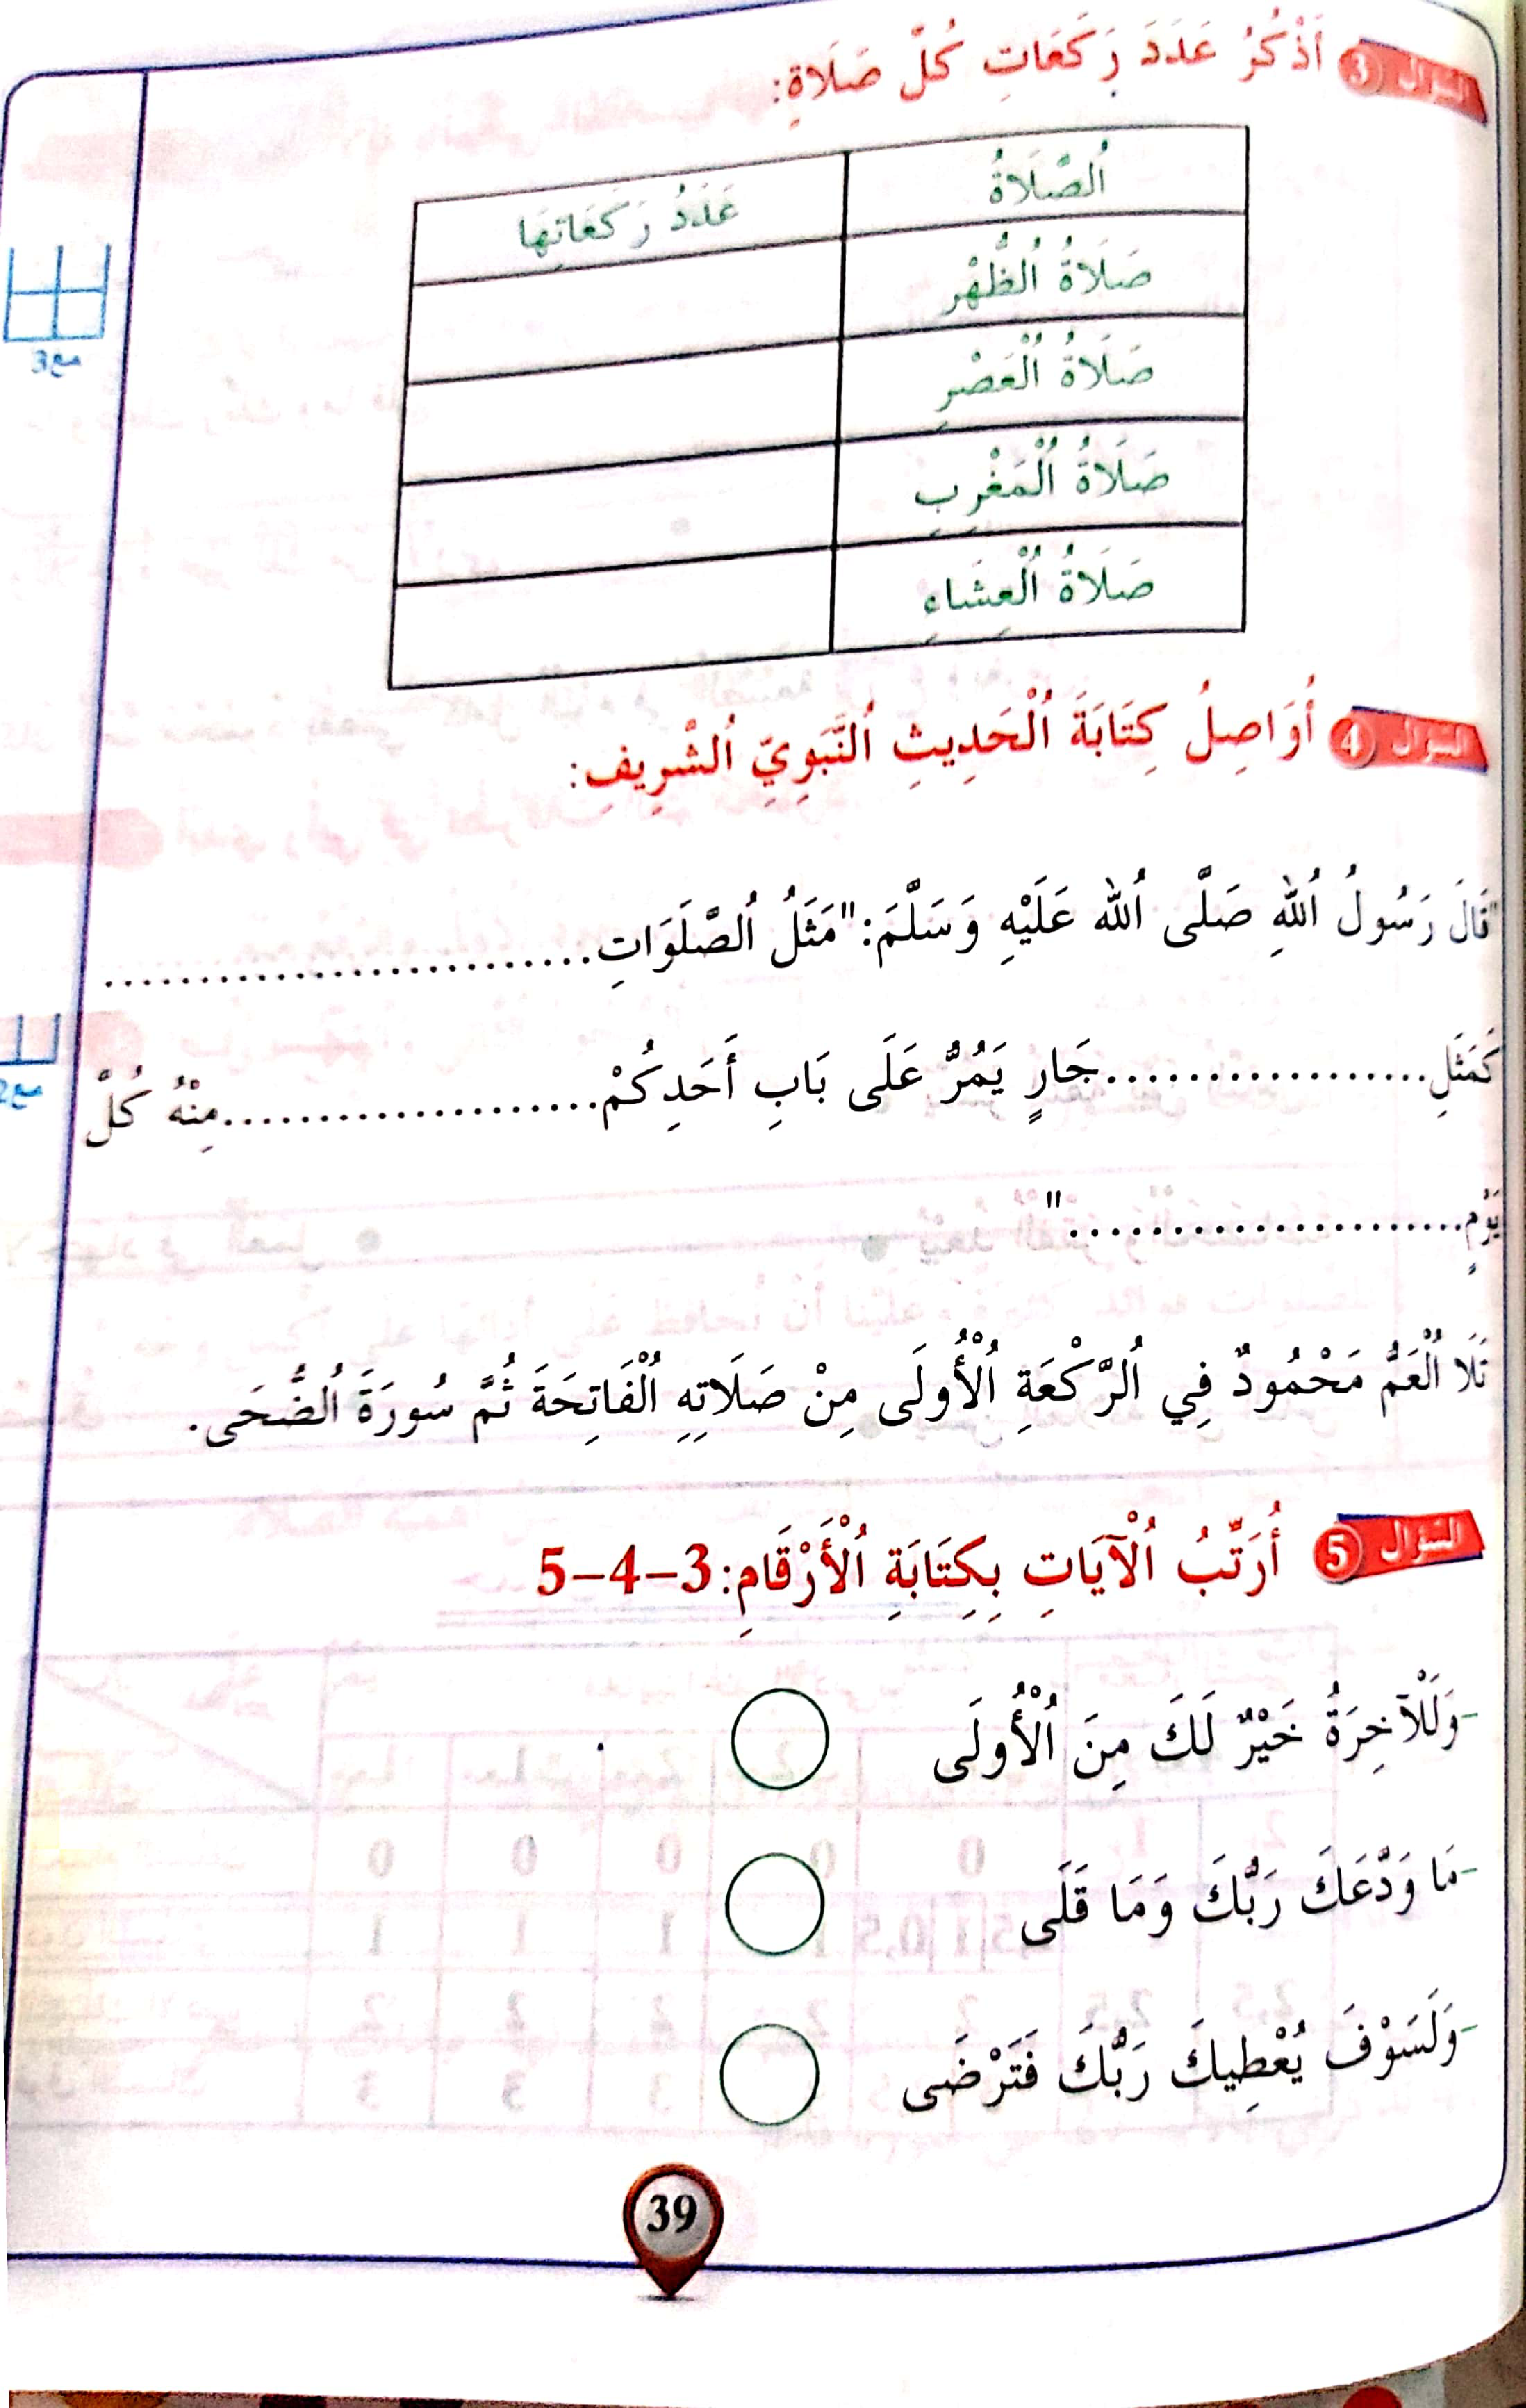 السؤال 3 أَذْكُرُ عَدَدَ رَكَعَاتِ كُلِّ صَلَاةٍ:
اُلصَّلَاةُ عَدَدُ رَكَعَاتِهَا
صَلَاةُ اُلظُّهْرِ
صَلَاةُ اُلْعَصْرِ
صَلَاةُ اُلْمَغْرِبِ
صَلَاةُ اُلْعِشَاءِ
مع3
السؤال 4 أُوَاصِلُ كِتَابَةَ اُلْحَدِيثِ اُلنَّبَوِيِّ اُلشَّرِيفِ:
"قَالَ رَسُولُ اُللهِ صَلَّى اُلله عَلَيْهِ وَسَلَّمَ:"مَثَلُ اُلصَّلَوَاتِ............................
كَمَثَلِ..................جَارٍ يَمُرُّ عَلَى بَابِ أَحَدِكُمْ.....................مِنْهُ كُلَّ
مع2
يَوْمٍ......................"
تَلَا اُلْعَمُّ مَحْمُودٌ فِي اُلرَّكْعَةِ اُلْأُولَى مِنْ صَلَاتِهِ اُلْفَاتِحَةَ ثُمَّ سُورَةَ اُلضُّحَى.
السؤال 5 أُرَتِّبُ اُلْآيَاتِ بِكِتَابَةِ اُلْأَرْقَامِ:3-4-5
-وَلَلْآخِرَةُ خَيْرٌ لَكَ مِنَ اُلْأُولَى
-مَا وَدَّعَكَ رَبُّكَ وَمَا قَلَى
-وَلَسَوْفَ يُعْطِيكَ رَبُّكَ فَتَرْضَى
39